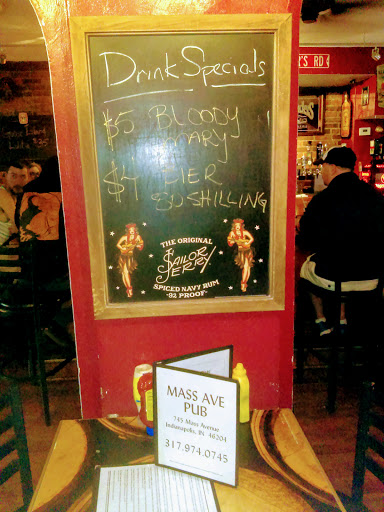 Drink Specials
$5 BLOODY
MARY
$4 PIER
SUSHILLING
THE ORIGINAL
SAILOR
JERRY
SPICED NAVY RUM
92 PROOF
'S RD
MASS AVE
PUB
745 Mass Avenue
Indianapolis, IN 46204
317.974.0745